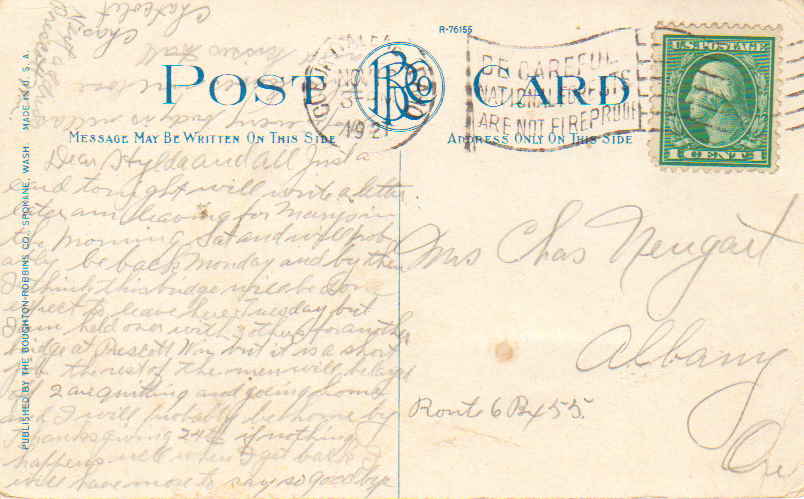 R-76155
POST CARD
BRCo
MESSAGE MAY BE WRITTEN ON THIS SIDE
ADDRESS ONLY ON THIS SIDE
BE CAREFUL
NATIONAL FORESTS
ARE NOT FIREPROOF
U.S. POSTAGE
1 CENT 1
PUBLISHED BY THE BOUGHTON-ROBBINS CO., SPOKANE, WASH. MADE IN U. S. A.
Dear and all Just a
card tonight will write a letter
later am leaving for
morning Sat and will prob
ably be back Monday and by then
I think this bridge will be done
expect to leave here Tuesday but
I am held over with 3 others for another
bridge at Prescott Wn but it is a short
job the rest of the men will be layed
off 2 are quitting and going home
and I will probably be home by
Thanksgiving 24th if nothing
happens well when I get back I
will have more to say so good bye
Mrs Chas Neugart
Albany
Route 6 Bx 55.
Ore